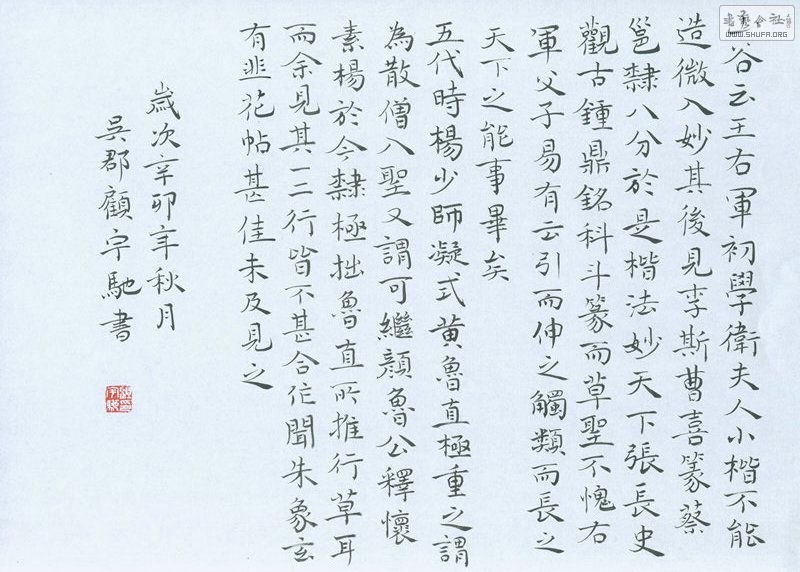 谷云王右軍初學衛夫人小楷不能
造微入妙其後見李斯曹喜篆蔡
邕隸八分於是楷法妙天下張長史
觀古鍾鼎銘科斗篆而草聖不愧右
軍父子易有云引而伸之觸類而長之
天下之能事畢矣
五代時楊少師凝式黄魯直極重之謂
為散僧入聖又謂可繼顏魯公釋懷
素楊於今隸極拙魯直所推行草耳
而余見其一二行皆不甚合作聞朱象玄
有韭花帖甚佳未及見之
歲次辛卯年秋月
吳郡顧宇馳書
WWW.SHUFA.ORG